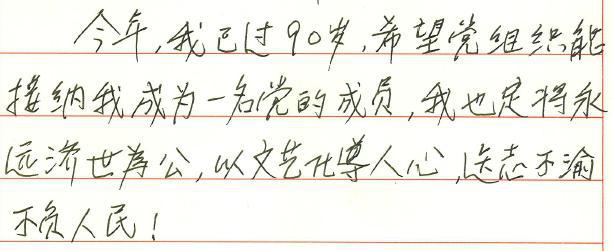 今年,我已过90岁,希望党组织能
接纳我成为一名党的成员,我也定将永
远济世为公,以文艺化导人心,矢志不渝
不负人民!